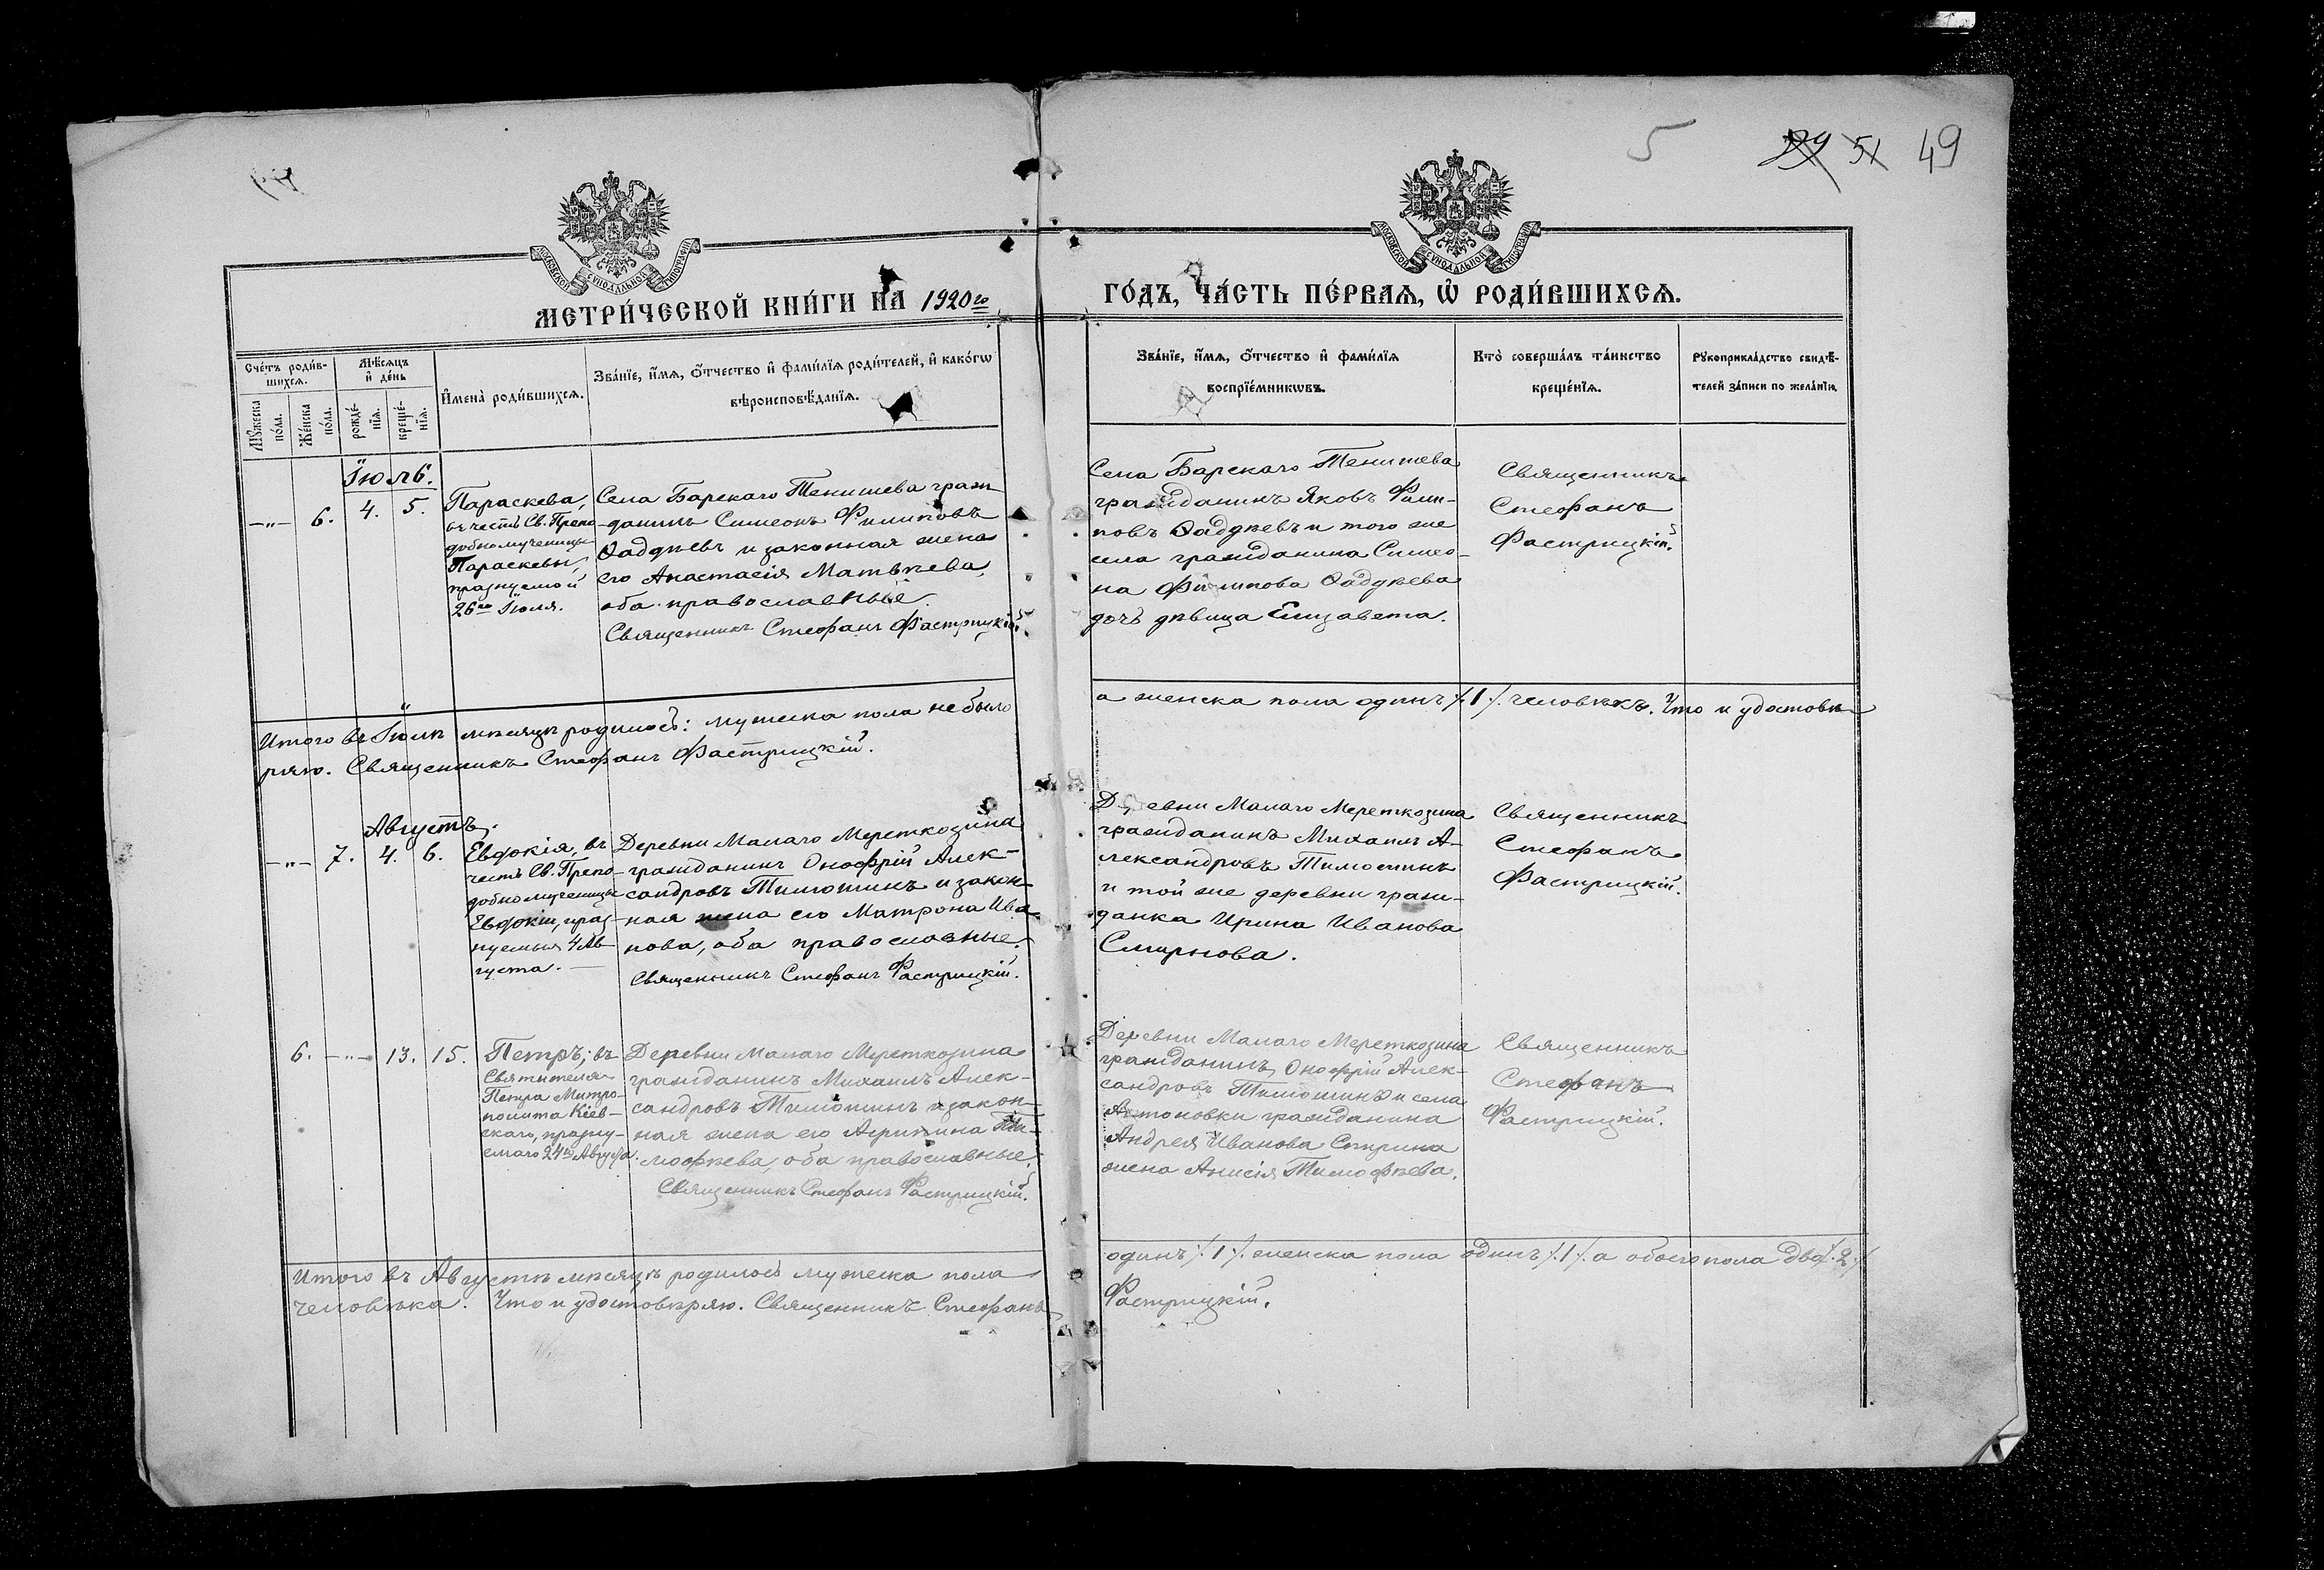 5 29 51 49
МОСКОВСКОЙ СѴНОДАЛЬНОЙ ТИПОГРАФІИ
МОСКОВСКОЙ СѴНОДАЛЬНОЙ ТИПОГРАФІИ
МЕТРИ́ЧЕСКОЙ КНИ́ГИ НА 1920го
ГО́ДЪ, ЧА́СТЬ ПЕ́РВАѦ, Ѡ҆ РОДИ́ВШИХСѦ.
Сче́тъ роди́в-
шихсѧ.
Мꙋ́жеска
по́ла.
Же́нска
по́ла.
Мѣ́сѧцъ
и҆ де́нь
рожде́-
нїѧ.
креще́-
нїѧ.
И҆мена̀ роди́вшихсѧ.
Зва́нїе, и҆́мѧ, ѻ҆́тчество и҆ фами́лїѧ роди́телей, и҆ како́гѡ
вѣроисповѣ́данїѧ.
Зва́нїе, и҆́мѧ, ѻ҆́тчество и҆ фами́лїѧ
воспрїе́мникѡвъ.
Кто̀ соверша́лъ та́инство
креще́нїѧ.
Рꙋкоприкла́дство свидѣ́-
телей за́писи по жела́нїю.
Іюль.
—„— 6. 4. 5.
Параскева,
въ честь Св. Препо-
добномученицы
Параскевы,
празнуемой
26го Іюля.
Села Барскаго Тенишева граж-
данинъ Симеонъ Филиповъ
Ѳаддѣевъ и законная жена
его Анастасія Матвѣева,
оба православные.
Священникъ Стефанъ Фастрицкій.
Села Барскаго Тенишева
гражданинъ Яковъ Фили-
повъ Ѳаддѣевъ и того же
села гражданина Симео-
на Филипова Ѳаддѣева
дочь дѣвица Елизавета.
Священникъ
Стефанъ
Фастрицкій.
Итого въ Іюлѣ мѣсяцѣ родилось: мужеска пола не было
а женска пола одинъ /.1/. человѣкъ. Что и удостовѣ-
ряю. Священникъ Стефанъ Фастрицкій.
Августъ.
—„— 7. 4. 6.
Евдокія, въ
честь Св. Препо-
добномученицы
Евдокіи, праз-
нуемыя 4 Ав-
густа.
Деревни Малаго Мереткозина
гражданинъ Онофрій Алек-
сандровъ Тимошинъ и закон-
ная жена его Матрона Ива-
нова, оба православные.
Священникъ Стефанъ Фастрицкій.
Деревни Малаго Мереткозина
гражданинъ Михаилъ А-
лександровъ Тимошинъ
и той же деревни граж-
данка Ирина Иванова
Смирнова.
Священникъ
Стефанъ
Фастрицкій.
6. —„— 13. 15.
Петръ; въ
Святителя
Петра Митро-
полита Кіев-
скаго, празну-
емаго 24го Августа.
Деревни Малаго Мереткозина
гражданинъ Михаилъ Алек-
сандровъ Тимошинъ и закон-
ная жена его Агрипина Ти-
мофѣева, оба православные.
Священникъ Стефанъ Фастрицкій.
Деревни Малаго Мереткозина
гражданинъ Онофрій Алек-
сандровъ Тимошинъ и села
Антоновки гражданина
Андрея Иванова
жена Анисія Тимофѣева.
Священникъ
Стефанъ
Фастрицкій.
Итого въ Августѣ мѣсяцѣ родилось мужеска пола
одинъ /.1/. женска пола одинъ /.1/. а обоего пола два /.2/.
человѣка. Что и удостовѣряю. Священникъ Стефанъ
Фастрицкій.